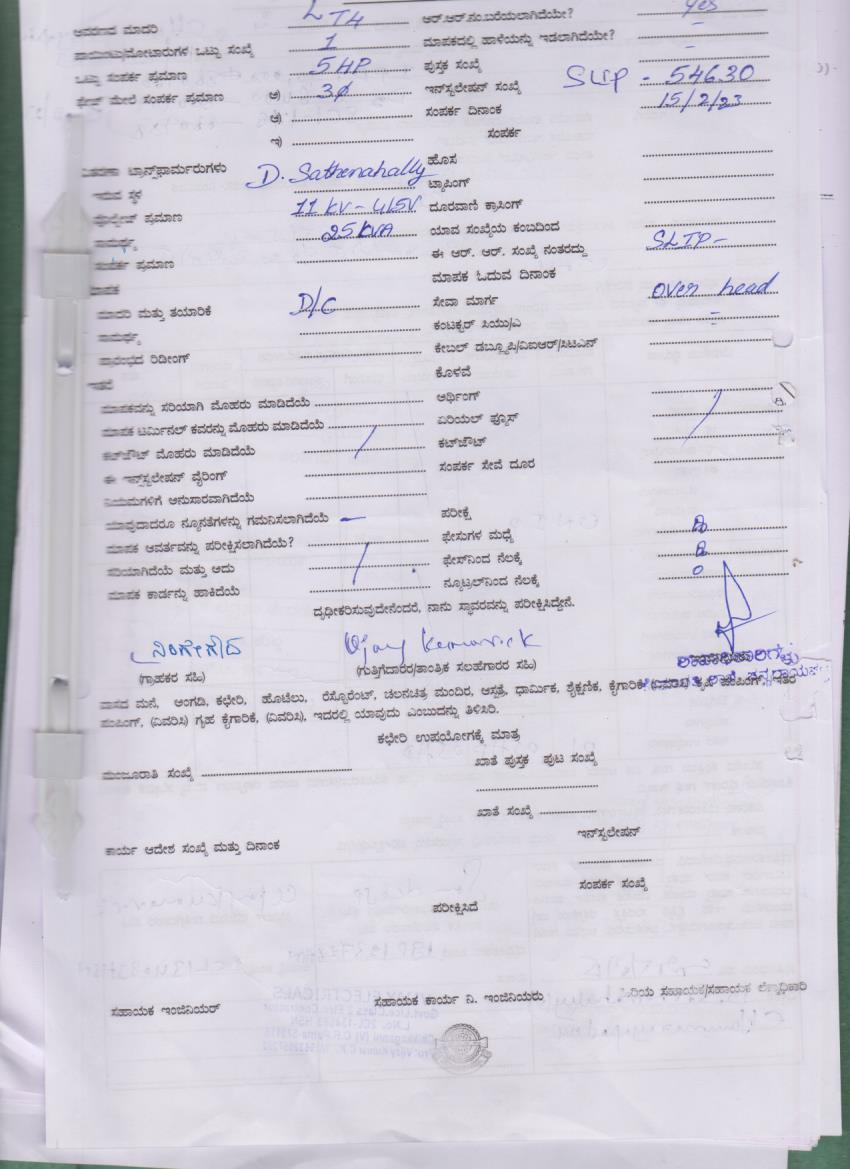 ಆವರಣದ ಮಾದರಿ LT4 ಆರ್.ಆರ್.ನಂ.ಬರೆಯಲಾಗಿದೆಯೇ? Yes
ಪಾಯಿಂಟು/ಮೋಟಾರುಗಳ ಒಟ್ಟು ಸಂಖ್ಯೆ 1 ಮಾಪಕದಲ್ಲಿ ಹಾಳೆಯನ್ನು ಇಡಲಾಗಿದೆಯೇ? -
ಒಟ್ಟು ಸಂಪರ್ಕ ಪ್ರಮಾಣ 5HP ಪುಸ್ತಕ ಸಂಖ್ಯೆ -
ಫೇಜ್ ಮೇಲೆ ಸಂಪರ್ಕ ಪ್ರಮಾಣ ಅ) 3ϕ ಇನ್‌ಸ್ಟಲೇಷನ್ ಸಂಖ್ಯೆ SLIP - 54630
ಆ) ಸಂಪರ್ಕ ದಿನಾಂಕ 15/2/23
ಇ) ಸಂಪರ್ಕ
ವಿತರಣಾ ಟ್ರಾನ್ಸ್‌ಫಾರ್ಮರುಗಳು ಹೊಸ
ಇರುವ ಸ್ಥಳ D. Sathenahally ಟ್ಯಾಪಿಂಗ್
ವೋಲ್ಟೇಜ್ ಪ್ರಮಾಣ 11 KV - 415V ದೂರವಾಣಿ ಕ್ರಾಸಿಂಗ್
ಸಾಮರ್ಥ್ಯ 25 KVA ಯಾವ ಸಂಖ್ಯೆಯ ಕಂಬದಿಂದ
ಸಂಪರ್ಕ ಪ್ರಮಾಣ ಈ ಆರ್. ಆರ್. ಸಂಖ್ಯೆ ನಂತರದ್ದು SLIP -
ಮಾಪಕ ಮಾಪಕ ಓದುವ ದಿನಾಂಕ
ಮಾದರಿ ಮತ್ತು ತಯಾರಿಕೆ D/C ಸೇವಾ ಮಾರ್ಗ over head
ಸಾಮರ್ಥ್ಯ ಕಂಟಕ್ಟರ್ ಸಿಯು/ಎ -
ಪ್ರಾರಂಭದ ರಿಡೀಂಗ್ ಕೇಬಲ್ ಡಬ್ಲ್ಯೂಪಿ/ವಿಐಆರ್/ಸಿಟಿಎನ್
ಇತರೆ ಕೊಳವೆ
ಮಾಪಕವನ್ನು ಸರಿಯಾಗಿ ಮೊಹರು ಮಾಡಿದೆಯೆ ಆರ್ಥಿಂಗ್
ಮಾಪಕ ಟರ್ಮಿನಲ್ ಕವರನ್ನು ಮೊಹರು ಮಾಡಿದೆಯೆ ಏರಿಯಲ್ ಫ್ಯೂಸ್
ಕಟ್‌ಔಟ್ ಮೊಹರು ಮಾಡಿದೆಯೆ ಕಟ್‌ಔಟ್
ಈ ಇನ್‌ಸ್ಟಲೇಷನ್ ವೈರಿಂಗ್ ಸಂಪರ್ಕ ಸೇವೆ ದೂರ
ನಿಯಮಗಳಿಗೆ ಅನುಸಾರವಾಗಿದೆಯೆ
ಯಾವುದಾದರೂ ನ್ಯೂನತೆಗಳನ್ನು ಗಮನಿಸಲಾಗಿದೆಯೆ - ಪರೀಕ್ಷೆ
ಮಾಪಕ ಆವರ್ತವನ್ನು ಪರೀಕ್ಷಿಸಲಾಗಿದೆಯೆ? ಫೇಸುಗಳ ಮಧ್ಯೆ
ಸರಿಯಾಗಿದೆಯೆ ಮತ್ತು ಅದು ಫೇಸ್‌ನಿಂದ ನೆಲಕ್ಕೆ
ಮಾಪಕ ಕಾರ್ಡನ್ನು ಹಾಕಿದೆಯೆ ನ್ಯೂಟ್ರಲ್‌ನಿಂದ ನೆಲಕ್ಕೆ 0
ದೃಢೀಕರಿಸುವುದೇನೆಂದರೆ, ನಾನು ಸ್ಥಾವರವನ್ನು ಪರೀಕ್ಷಿಸಿದ್ದೇನೆ.
ನಿಂಗೇಗೌಡ
(ಗ್ರಾಹಕರ ಸಹಿ) (ಗುತ್ತಿಗೆದಾರರ/ತಾಂತ್ರಿಕ ಸಲಹೆಗಾರರ ಸಹಿ)
ವಾಸದ ಮನೆ, ಅಂಗಡಿ, ಕಛೇರಿ, ಹೊಟೆಲು, ರೆಸ್ಟೋರೆಂಟ್, ಚಲನಚಿತ್ರ ಮಂದಿರ, ಆಸ್ಪತ್ರೆ, ಧಾರ್ಮಿಕ, ಶೈಕ್ಷಣಿಕ, ಕೈಗಾರಿಕೆ, (ವಿವರಿಸಿ) ಕೃಷಿ ಪಂಪಿಂಗ್, ಇತರ
ಪಂಪಿಂಗ್, (ವಿವರಿಸಿ) ಗೃಹ ಕೈಗಾರಿಕೆ, (ವಿವರಿಸಿ), ಇದರಲ್ಲಿ ಯಾವುದು ಎಂಬುದನ್ನು ತಿಳಿಸಿರಿ.
ಕಛೇರಿ ಉಪಯೋಗಕ್ಕೆ ಮಾತ್ರ
ಮಂಜೂರಾತಿ ಸಂಖ್ಯೆ ಖಾತೆ ಪುಸ್ತಕ ಪುಟ ಸಂಖ್ಯೆ
ಖಾತೆ ಸಂಖ್ಯೆ
ಕಾರ್ಯ ಆದೇಶ ಸಂಖ್ಯೆ ಮತ್ತು ದಿನಾಂಕ ಇನ್‌ಸ್ಟಲೇಷನ್
ಸಂಪರ್ಕ ಸಂಖ್ಯೆ
ಪರೀಕ್ಷಿಸಿದೆ
ಸಹಾಯಕ ಇಂಜಿನಿಯರ್ ಸಹಾಯಕ ಕಾರ್ಯ ನಿ. ಇಂಜಿನಿಯರು ಹಿರಿಯ ಸಹಾಯಕ/ಸಹಾಯಕ ಲೆಕ್ಕಾಧಿಕಾರಿ